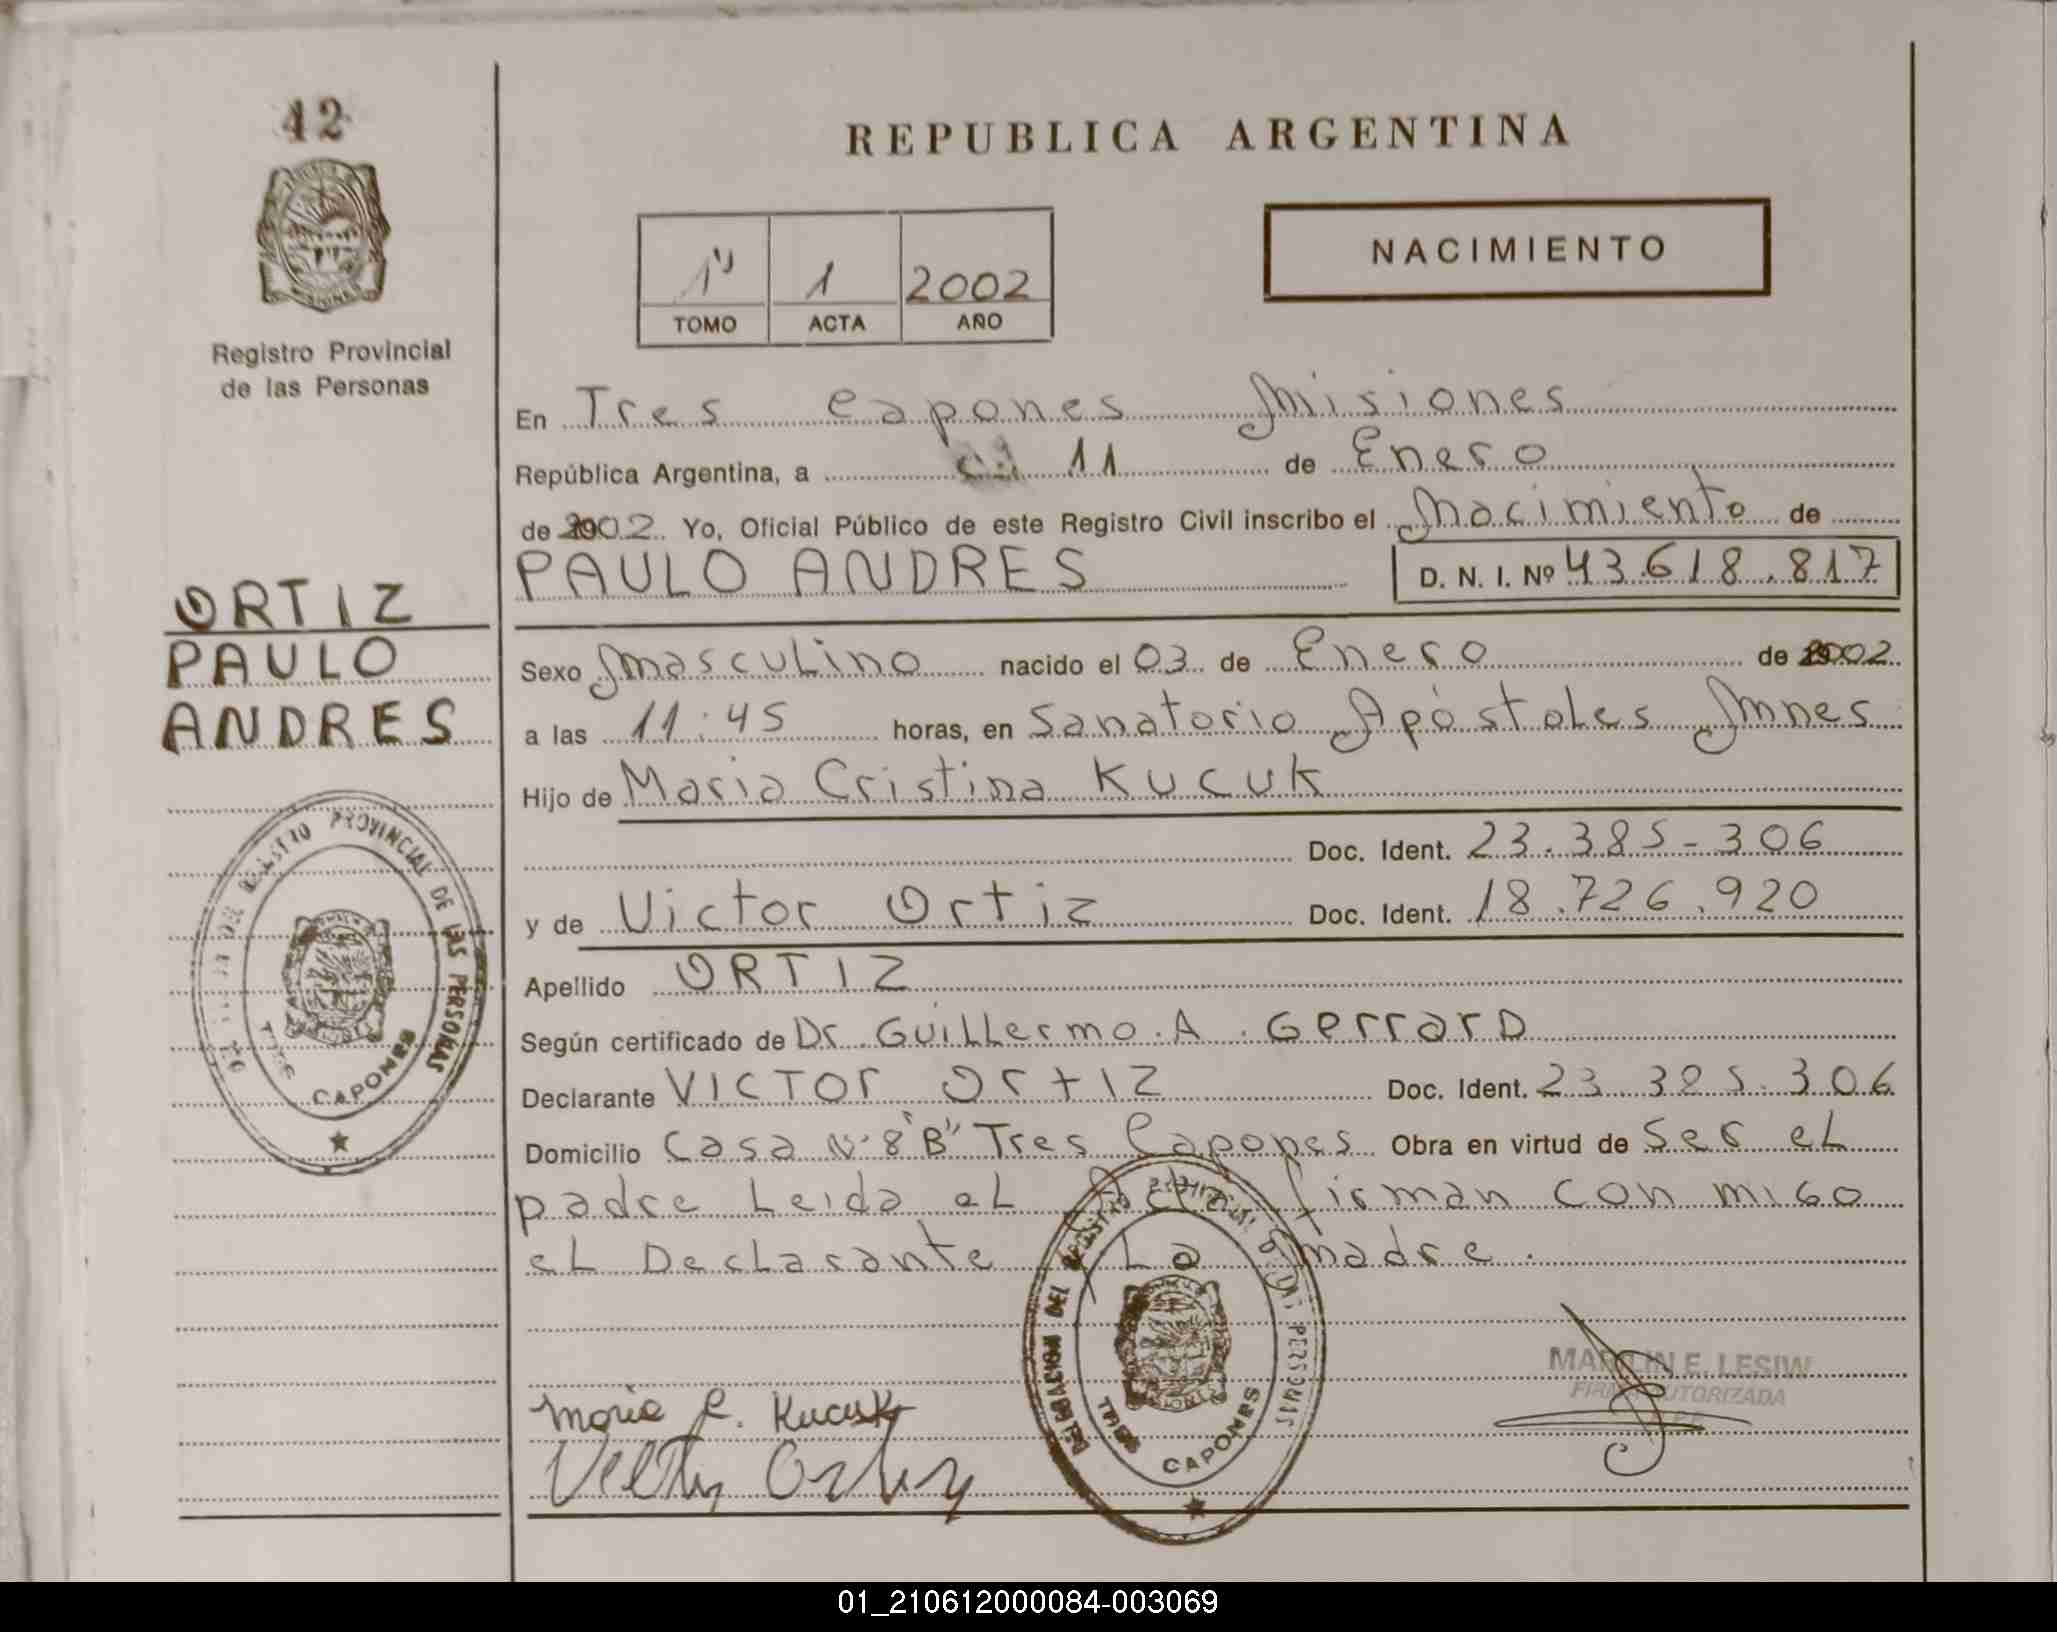 42
REPUBLICA ARGENTINA
NACIMIENTO
1º 1 2002
TOMO ACTA AÑO
Registro Provincial
de las Personas
En Tres Capones Misiones
República Argentina, a 11 de Enero
de 2002 Yo, Oficial Público de este Registro Civil inscribo el Nacimiento de
PAULO ANDRES D. N. I. Nº 43.618.817
ORTIZ
PAULO
ANDRES
Sexo masculino nacido el 03 de Enero de 2002
a las 11:45 horas, en Sanatorio Apóstoles Mnes
Hijo de Maria Cristina Kucuk
Doc. Ident. 23.385-306
y de Victor Ortiz Doc. Ident. 18.726.920
Apellido ORTIZ
Según certificado de Dr. Guillermo.A. Gerrard
Declarante VICTOR OrtIZ Doc. Ident. 23.385.306
Domicilio Casa Nº 8 "B" Tres Capones Obra en virtud de Ser el
padre Leida el firman con migo
el Declarante y La madre.
REGISTRO PROVINCIAL DE LAS PERSONAS
TRES CAPONES
DELEGACION DEL REGISTRO PROVINCIAL DE LAS PERSONAS
TRES CAPONES
E. LESIW
FIRMA AUTORIZADA
Maria C. Kucuk
Ortiz
01_210612000084-003069